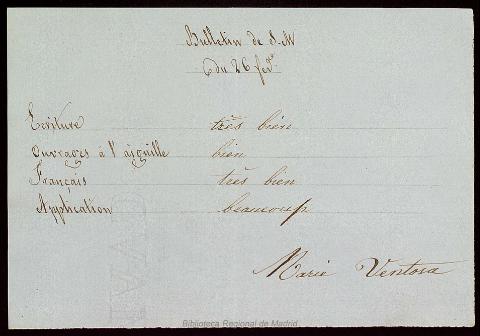 Bulletin de S. M
du 26 fev.
Ecriture très bien
ouvrages à l'aiguille bien
Français très bien
Application beaucoup
Marie Ventosa
Biblioteca Regional de Madrid